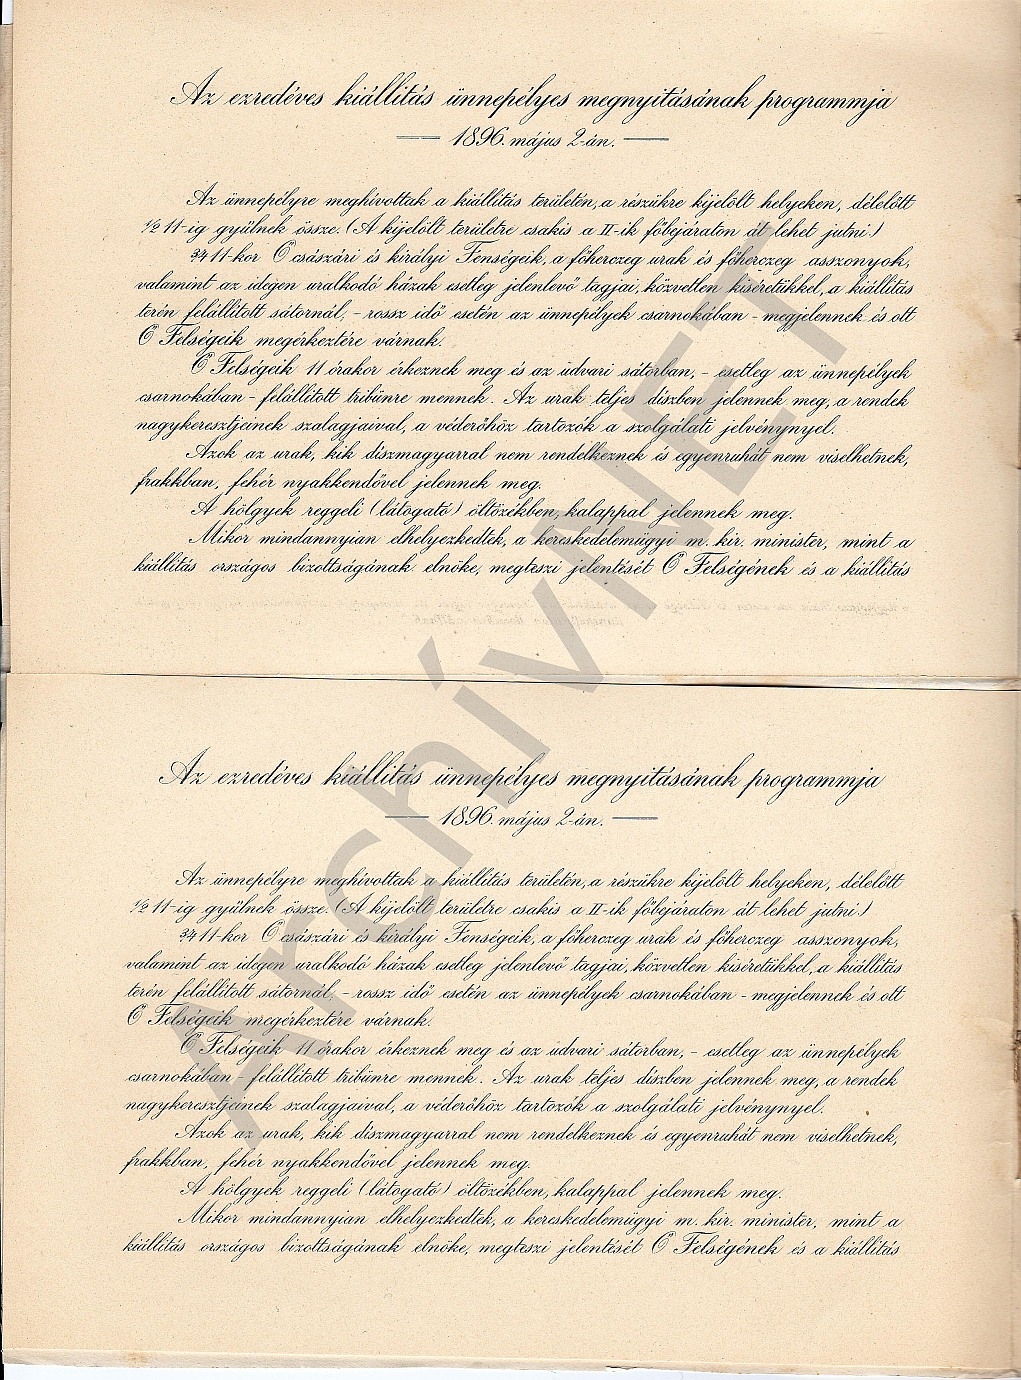 Az ezredéves kiállitás ünnepélyes megnyitásának programmja
1896. május 2-án.
Az ünnepélyre meghívottak a kiállítás területén, a részükre kijelölt helyeken, délelőtt
½ 11-ig gyűlnek össze. (A kijelölt területre csakis a II-ik főbejáraton át lehet jutni.)
¾ 11-kor Ő császári és királyi Fenségeik, a főherczeg urak és főherczeg asszonyok,
valamint az idegen uralkodó házak esetleg jelenlevő tagjai, közvetlen kiséretükkel, a kiállítás
terén felállított sátornál, - rossz idő esetén az ünnepélyek csarnokában - megjelennek és ott
Ő Felségeik megérkeztére várnak.
Ő Felségeik 11 órakor érkeznek meg és az udvari sátorban, - esetleg az ünnepélyek
csarnokában - felállított tribünre mennek. Az urak teljes díszben jelennek meg, a rendek
nagykeresztjeinek szalagjaival, a véderőhöz tartozók a szolgálati jelvénynyel.
Azok az urak, kik díszmagyarral nem rendelkeznek és egyenruhát nem viselhetnek,
frakkban, fehér nyakkendővel jelennek meg.
A hölgyek reggeli (látogató) öltözékben, kalappal jelennek meg.
Mikor mindannyian elhelyezkedtek, a kereskedelemügyi m. kir. minister, mint a
kiállítás országos bizottságának elnöke, megteszi jelentését Ő Felségének és a kiállítás
Az ezredéves kiállitás ünnepélyes megnyitásának programmja
1896. május 2-án.
Az ünnepélyre meghívottak a kiállítás területén, a részükre kijelölt helyeken, délelőtt
½ 11-ig gyűlnek össze. (A kijelölt területre csakis a II-ik főbejáraton át lehet jutni.)
¾ 11-kor Ő császári és királyi Fenségeik, a főherczeg urak és főherczeg asszonyok,
valamint az idegen uralkodó házak esetleg jelenlevő tagjai, közvetlen kiséretükkel, a kiállítás
terén felállított sátornál, - rossz idő esetén az ünnepélyek csarnokában - megjelennek és ott
Ő Felségeik megérkeztére várnak.
Ő Felségeik 11 órakor érkeznek meg és az udvari sátorban, - esetleg az ünnepélyek
csarnokában - felállított tribünre mennek. Az urak teljes díszben jelennek meg, a rendek
nagykeresztjeinek szalagjaival, a véderőhöz tartozók a szolgálati jelvénynyel.
Azok az urak, kik díszmagyarral nem rendelkeznek és egyenruhát nem viselhetnek,
frakkban, fehér nyakkendővel jelennek meg.
A hölgyek reggeli (látogató) öltözékben, kalappal jelennek meg.
Mikor mindannyian elhelyezkedtek, a kereskedelemügyi m. kir. minister, mint a
kiállítás országos bizottságának elnöke, megteszi jelentését Ő Felségének és a kiállítás
ArchívNET